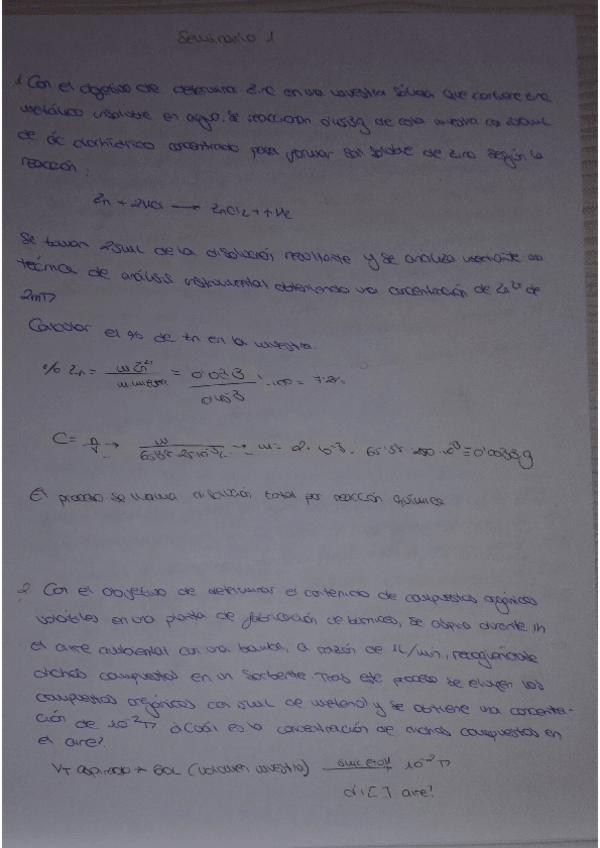 Seminario 1
1 Con el objetivo de determinar zinc en una muestra sólida que contiene zinc
metálico insoluble en agua, se reaccionan 0'453g de esta muestra con 250mL
de ác clorhídrico concentrado para formar sal soluble de zinc según la
reacción:
Zn + 2HCl → ZnCl2 + H2
Se toman 25mL de la disolución resultante y se analiza mediante una
técnica de análisis instrumental obteniendo una concentración de Zn2+ de
2mM
Calcular el % de Zn en la muestra.
% Zn = m Zn2+ / m muestra = 0'033 / 0'453 · 100 = 7'2%
C = n/V →
El proceso se llama disolución total por reacción química
2. Con el objetivo de determinar el contenido de compuestos orgánicos
volátiles en una planta de fabricación de barnices, se aspira durante 1h
el aire ambiental con una bomba, a razón de 1L/min, recogiéndose
dichos compuestos en un sorbente. Tras este proceso se eluyen los
compuestos orgánicos con 5mL de metanol y se obtiene una concentra-
ción de 10-2M ¿Cuál es la concentración de dichos compuestos en
el aire?
VT aspirado → 60L (volumen muestra) 10-2M
¿[ ] aire?